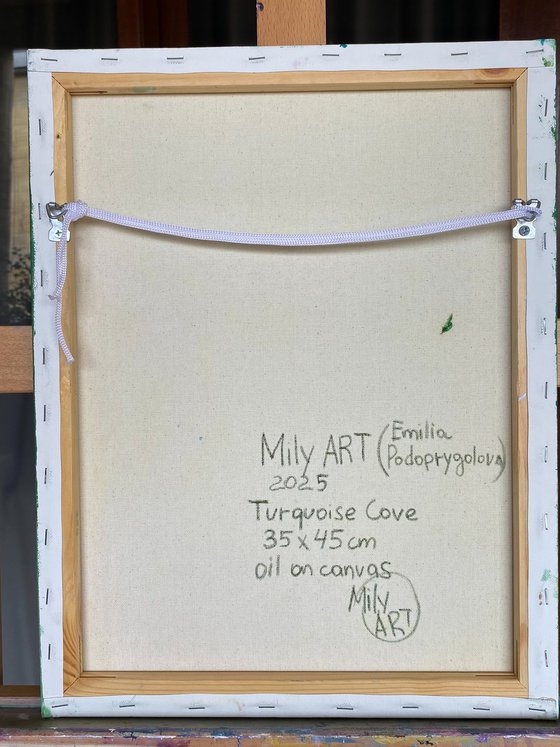 Mily ART (Emilia
Podoprygolova)
2025
Turquoise Cove
35 x 45 cm
oil on canvas
Mily
ART